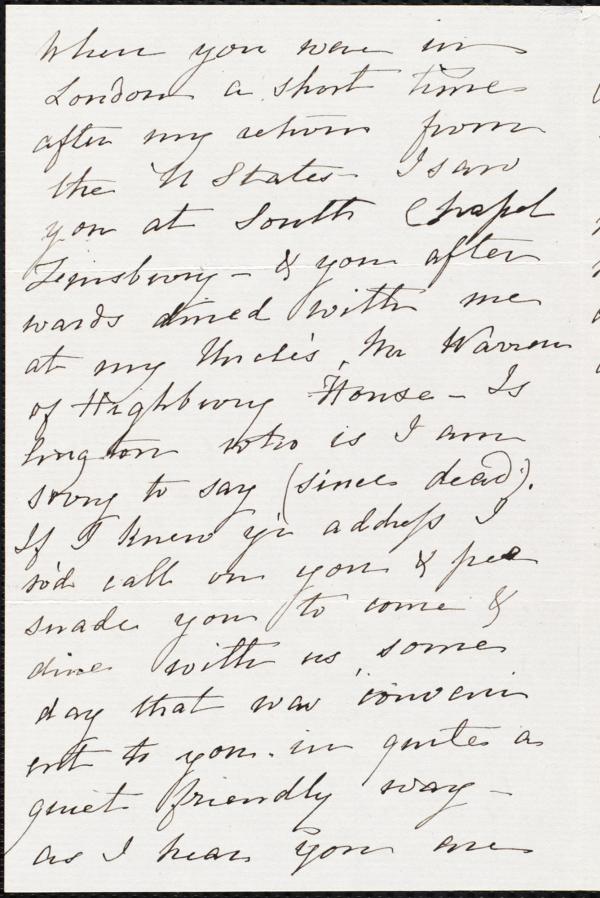 when you were in
London a short time
after my return from
the U States - I saw
you at South Chapel
Finsbury - & you after
wards dined with me
at my Uncle's, Mr Warren
of Highbury House - Is
lington who is I am
sorry to say (since dead).
If I knew yr address I
sod call on you & per
suade you to come &
dine with us, some
day that was conveni
ent to you. in quite a
quiet friendly way -
as I hear you are